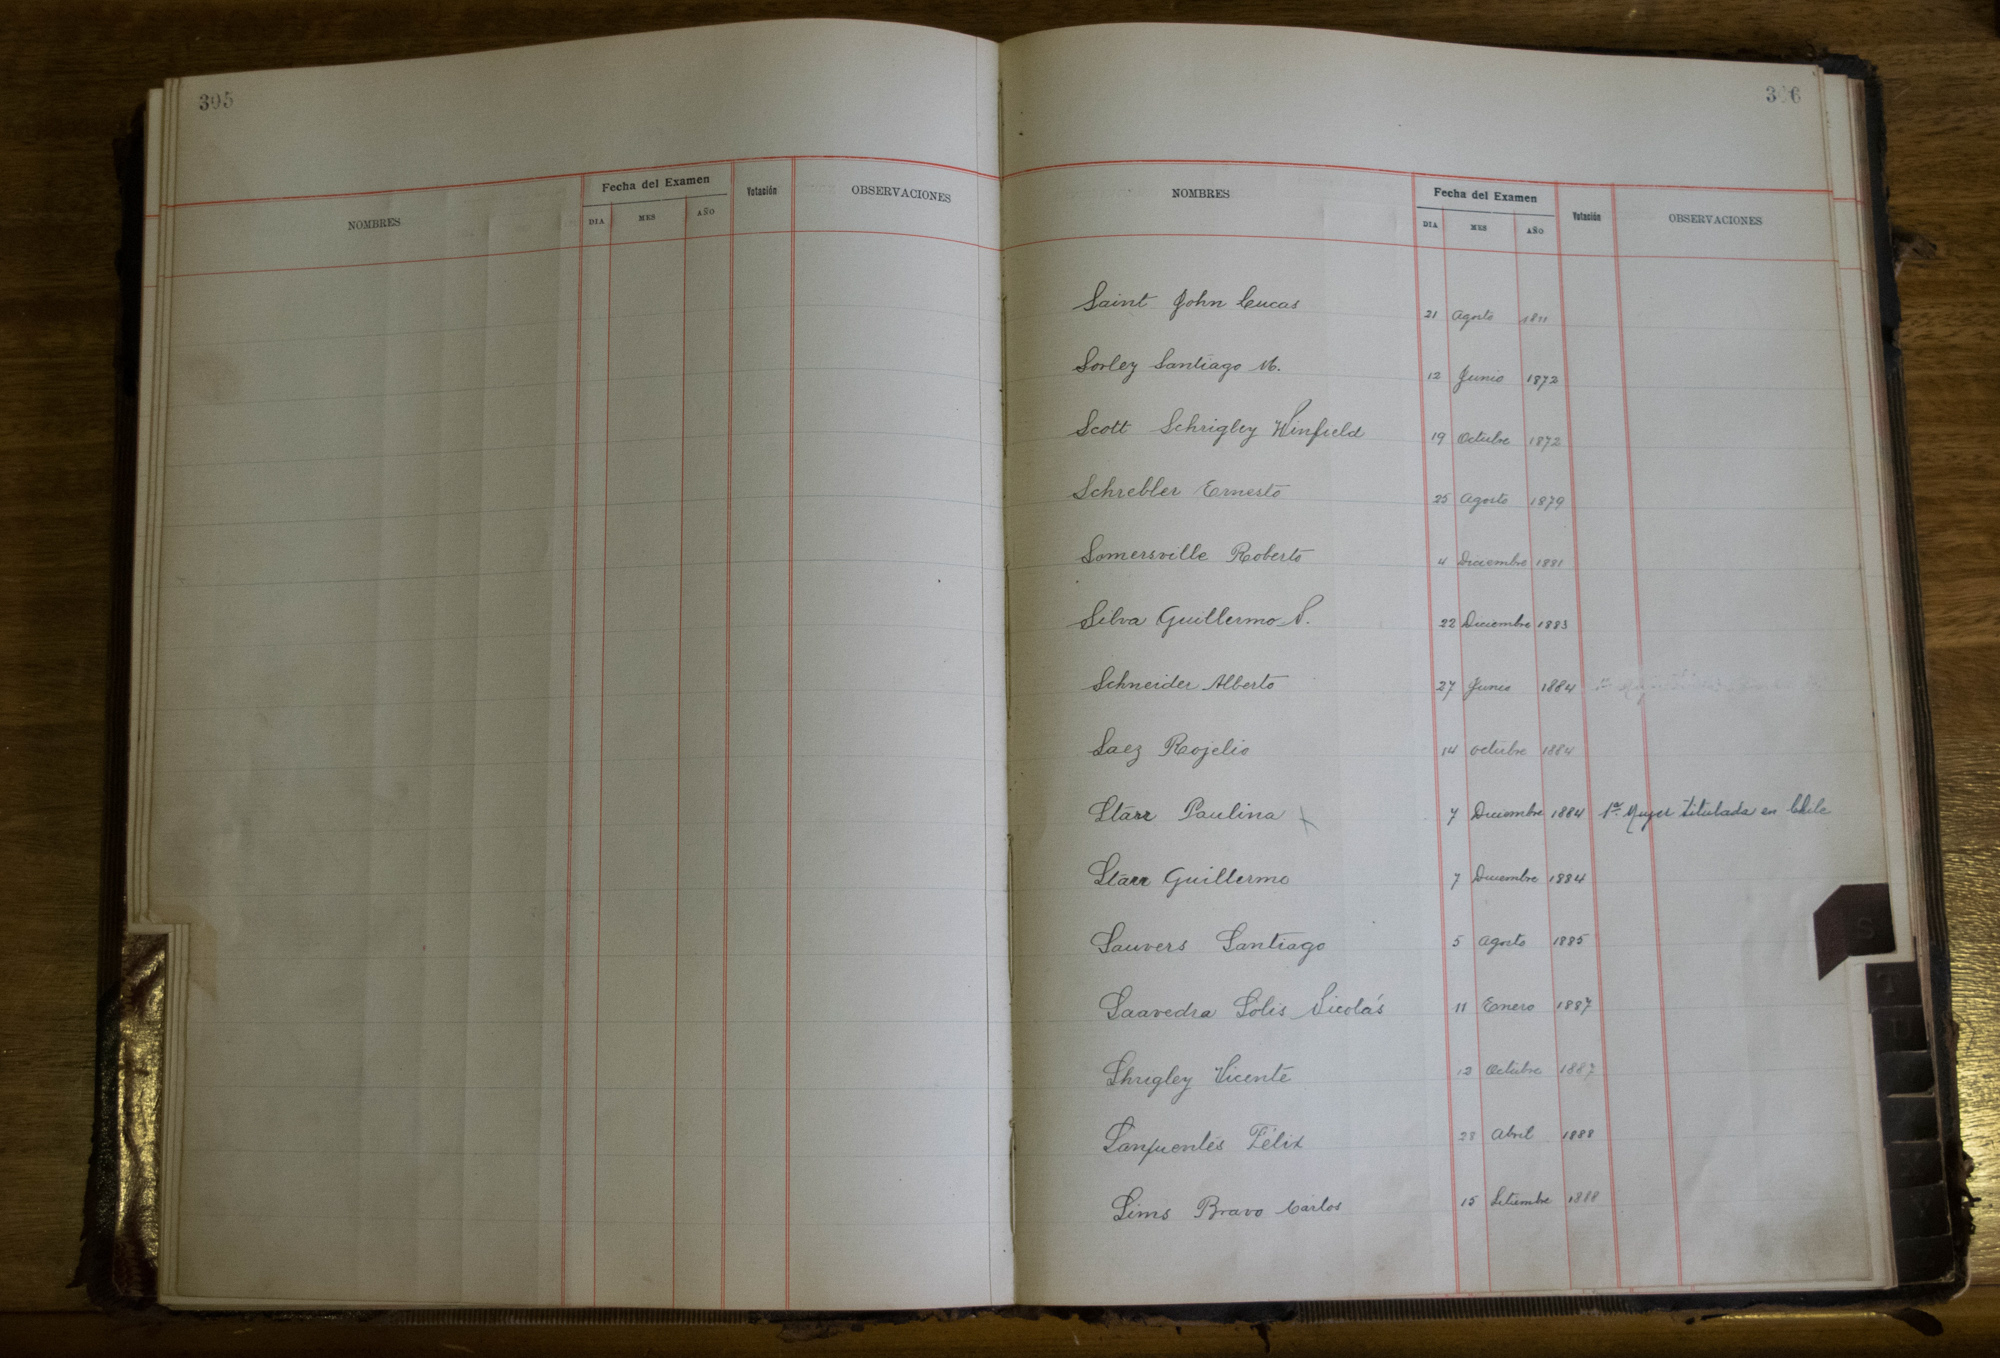 305
NOMBRES Fecha del Examen Votación OBSERVACIONES
DIA MES AÑO
306
NOMBRES Fecha del Examen Votación OBSERVACIONES
DIA MES AÑO
Saint John Lucas 21 Agosto 1811
Sorley Santiago M. 12 Junio 1872
Scott Schrigley Winfield 19 Octubre 1872
Schrebler Ernesto 25 Agosto 1879
Somersville Roberto 4 Diciembre 1881
Silva Guillermo S. 22 Diciembre 1883
Schneider Alberto 27 Junio 1884
Saez Rojelio 14 Octubre 1884
Starr Paulina 7 Diciembre 1884 1ª Mujer titulada en Chile
Starr Guillermo 7 Diciembre 1884
Sauvers Santiago 5 Agosto 1885
Saavedra Solis Nicolás 11 Enero 1887
Shrigley Vicente 12 Octubre 1887
Sanfuentes Félix 28 Abril 1888
Sims Bravo Carlos 15 Setiembre 1888
S
T
U